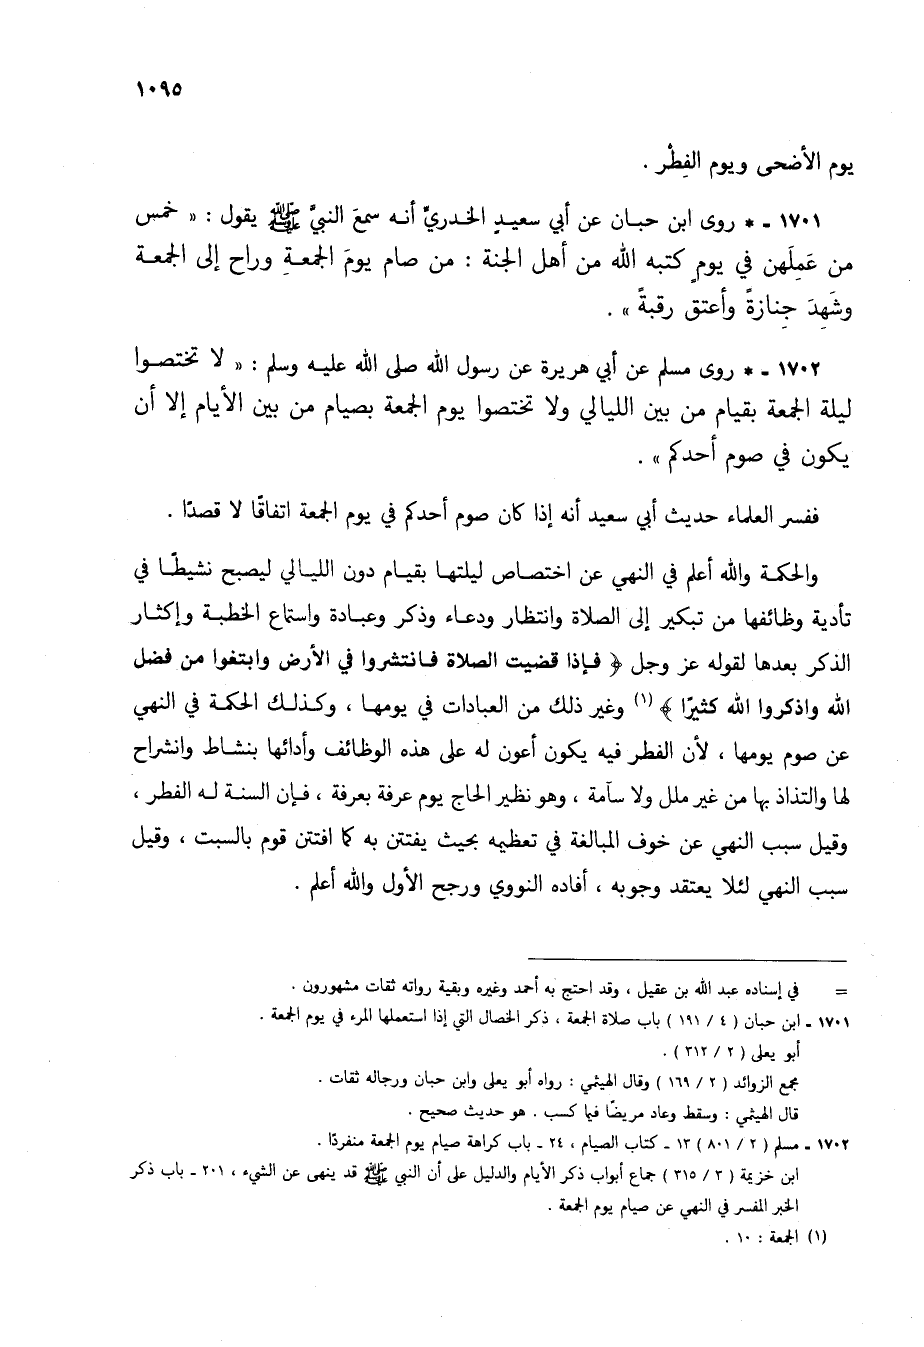 ١٠٩٥
يوم الأضحى ويوم الفِطْر .
١٧٠١ - * روى ابن حبان عن أبي سعيدٍ الخدريِّ أنه سمعَ النبيَّ ﷺ يقول : « خمس
من عَمِلَهن في يومٍ كتبه الله من أهل الجنة : من صام يومَ الجمعةِ وراح إلى الجمعة
وشَهِدَ جِنازةً وأعتق رقبةً » .
١٧٠٢ - * روى مسلم عن أبي هريرة عن رسول الله صلى الله عليه وسلم : « لا تختصوا
ليلة الجمعة بقيام من بين الليالي ولا تختصوا يوم الجمعة بصيام من بين الأيام إلا أن
يكون في صوم أحدكم » .
ففسر العلماء حديث أبي سعيد أنه إذا كان صوم أحدكم في يوم الجمعة اتفاقًا لا قصدًا .
والحكمة والله أعلم في النهي عن اختصاص ليلتها بقيام دون الليالي ليصبح نشيطًا في
تأدية وظائفها من تبكير إلى الصلاة وانتظار ودعاء وذكر وعبادة واستماع الخطبة وإكثار
الذكر بعدها لقوله عز وجل ﴿ فإذا قضيت الصلاة فانتشروا في الأرض وابتغوا من فضل
الله واذكروا الله كثيرًا ﴾ (١) وغير ذلك من العبادات في يومها ، وكذلك الحكمة في النهي
عن صوم يومها ، لأن الفطر فيه يكون أعون له على هذه الوظائف وأدائها بنشاط وانشراح
لها والتذاذ بها من غير ملل ولا سآمة ، وهو نظير الحاج يوم عرفة بعرفة ، فإن السنة له الفطر ،
وقيل سبب النهي عن خوف المبالغة في تعظيمه بحيث يفتتن به كما افتتن قوم بالسبت ، وقيل
سبب النهي لئلا يعتقد وجوبه ، أفاده النووي ورجح الأول والله أعلم .
= في إسناده عبد الله بن عقيل ، وقد احتج به أحمد وغيره وبقية رواته ثقات مشهورون .
١٧٠١ - ابن حبان ( ٤ / ١٩١ ) باب صلاة الجمعة ، ذكر الخصال التي إذا استعملها المرء في يوم الجمعة .
أبو يعلى ( ٢ / ٣١٢ ) .
مجمع الزوائد ( ٢ / ١٦٩ ) وقال الهيثمي : رواه أبو يعلى وابن حبان ورجاله ثقات .
قال الهيثمي : وسقط وعاد مريضًا فيما كسب . هو حديث صحيح .
١٧٠٢ - مسلم ( ٢ / ٨٠١ ) ١٣ - كتاب الصيام ، ٢٤ - باب كراهة صيام يوم الجمعة منفردًا .
ابن خزيمة ( ٣ / ٣١٥ ) جماع أبواب ذكر الأيام والدليل على أن النبي ﷺ قد ينهى عن الشيء ، ٢٠١ - باب ذكر
الخبر المفسر في النهي عن صيام يوم الجمعة .
(١) الجمعة : ١٠ .